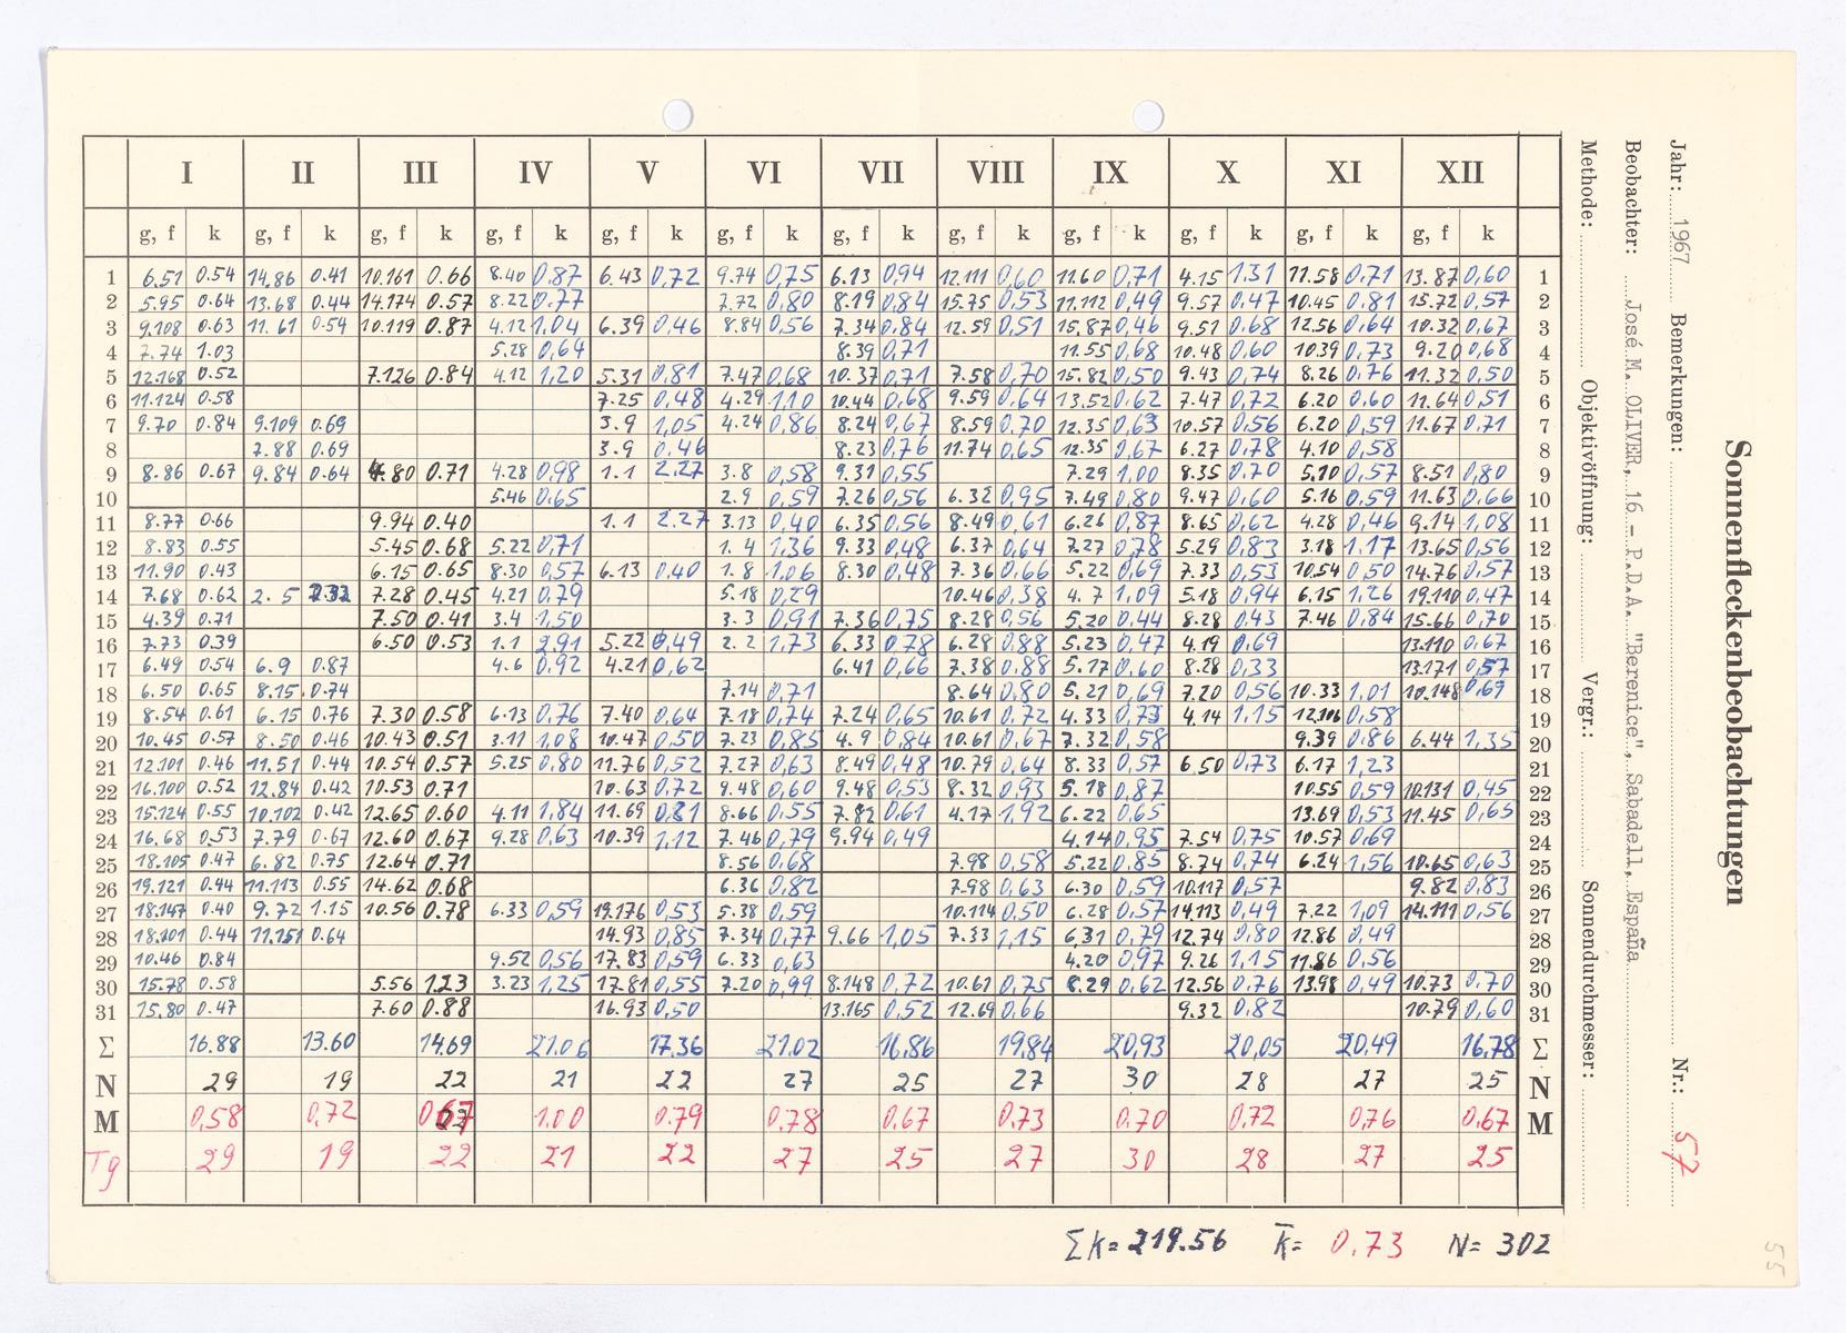 Sonnenfleckenbeobachtungen
Jahr: 1967 Bemerkungen: Nr.: 57
Beobachter: José M. OLIVER, 16 - P.D.A. "Berenice", Sabadell, España
Methode: Objektivöffnung: Vergr.: Sonnendurchmesser:
I II III IV V VI VII VIII IX X XI XII
g, f k g, f k g, f k g, f k g, f k g, f k g, f k g, f k g, f k g, f k g, f k g, f k
1 6.51 0.54 14.86 0.41 10.161 0.66 8.40 0,87 6.43 0,72 9.74 0,75 6.13 0,94 12.111 0,60 11.60 0,71 4.15 1.31 11.58 0,71 13.87 0,60 1
2 5.95 0.64 13.68 0.44 14.174 0.57 8.22 0.77 7.72 0,80 8.19 0,84 15.75 0.53 11.112 0,49 9.57 0.47 10.45 0.81 15.72 0,57 2
3 9.108 0.63 11.61 0.54 10.119 0.87 4.12 1,04 6.39 0,46 8.84 0,56 7.34 0,84 12.59 0,51 15.87 0,46 9.51 0.68 12.56 0,64 10.32 0,67 3
4 7.74 1.03 5.28 0,64 8.39 0,71 11.55 0,68 10.48 0,60 10.39 0,73 9.20 0,68 4
5 12.168 0.52 7.126 0.84 4.12 1,20 5.31 0,81 7.47 0,68 10.37 0,71 7.58 0,70 15.82 0,50 9.43 0,74 8.26 0,76 11.32 0,50 5
6 11.124 0.58 7.25 0,48 4.29 1,10 10.44 0,68 9.59 0,64 13.52 0.62 7.47 0,72 6.20 0.60 11.64 0,51 6
7 9.70 0.84 9.109 0.69 3.9 1,05 4.24 0,86 8.24 0,67 8.59 0.70 12.35 0,63 10.57 0,56 6.20 0,59 11.67 0,71 7
8 7.88 0.69 3.9 0.46 8.23 0,76 11.74 0,65 12.35 0,67 6.27 0,78 4.10 0,58 8
9 8.86 0.67 9.84 0.64 4.80 0.71 4.28 0,98 1.1 2.27 3.8 0,58 9.31 0,55 7.29 1,00 8.35 0.70 5.10 0,57 8.51 0,80 9
10 5.46 0.65 2.9 0,59 7.26 0,56 6.32 0,95 7.49 0,80 9.47 0,60 5.16 0,59 11.63 0,66 10
11 8.77 0.66 9.94 0.40 1.1 2.27 3.13 0,40 6.35 0,56 8.49 0,61 6.26 0,87 8.65 0,62 4.28 0,46 9.14 1,08 11
12 8.83 0.55 5.45 0.68 5.22 0,71 1.4 1,36 9.33 0,48 6.37 0,64 7.27 0,78 5.29 0,83 3.18 1,17 13.65 0,56 12
13 11.90 0.43 6.15 0.65 8.30 0,57 6.13 0,40 1.8 1,06 8.30 0,48 7.36 0,66 5.22 0,69 7.33 0,53 10.54 0,50 14.76 0,57 13
14 7.68 0.62 2.5 7.28 0.45 4.21 0,79 5.18 0,29 10.46 0,38 4.7 1,09 5.18 0,94 6.15 1,26 19.110 0,47 14
15 4.39 0.71 7.50 0.41 3.4 1,50 3.3 0,91 7.36 0,75 8.28 0,56 5.20 0,44 8.28 0,43 7.46 0,84 15.66 0,70 15
16 7.73 0.39 6.50 0.53 1.1 2,91 5.22 0,49 2.2 1,73 6.33 0,78 6.28 0,88 5.23 0,47 4.19 0,69 13.110 0,67 16
17 6.49 0.54 6.9 0.87 4.6 0,92 4.21 0,62 6.41 0,66 7.38 0,88 5.17 0,60 8.28 0,33 13.171 0,57 17
18 6.50 0.65 8.15 0.74 7.14 0,71 8.64 0,80 5.21 0,69 7.20 0,56 10.33 1,01 10.148 0,69 18
19 8.54 0.61 6.15 0.76 7.30 0.58 6.13 0,76 7.40 0,64 7.18 0,74 7.24 0,65 10.61 0,72 4.33 0,73 4.14 1,15 12.106 0,58 19
20 10.45 0.57 8.50 0.46 10.43 0.51 3.11 1,08 10.47 0,50 7.23 0,85 4.9 0,84 10.61 0,67 7.32 0,58 9.39 0,86 6.44 1,35 20
21 12.101 0.46 11.51 0.44 10.54 0.57 5.25 0,80 11.76 0,52 7.27 0,63 8.49 0,48 10.79 0,64 8.33 0,57 6.50 0,73 6.17 1,23 21
22 16.100 0.52 12.84 0.42 10.53 0.71 10.63 0,72 9.48 0,60 9.48 0,53 8.32 0,93 5.18 0,87 10.55 0,59 10.131 0,45 22
23 15.124 0.55 10.102 0.42 12.65 0.60 4.11 1,84 11.69 0,81 8.66 0,55 7.82 0,61 4.17 1,92 6.22 0,65 13.69 0,53 11.45 0,65 23
24 16.68 0.53 7.79 0.67 12.60 0.67 9.28 0,63 10.39 1,12 7.46 0,79 9.94 0,49 4.14 0,95 7.54 0,75 10.57 0,69 24
25 18.105 0.47 6.82 0.75 12.64 0.71 8.56 0.68 7.98 0,58 5.22 0,85 8.74 0,74 6.24 1,56 10.65 0,63 25
26 19.121 0.44 11.113 0.55 14.62 0.68 6.36 0,82 7.98 0,63 6.30 0,59 10.117 0,57 9.82 0,83 26
27 18.147 0.40 9.72 1.15 10.56 0.78 6.33 0,59 19.176 0,53 5.38 0,59 10.114 0,50 6.28 0,57 14.113 0,49 7.22 1,09 14.111 0,56 27
28 18.101 0.44 11.151 0.64 14.93 0,85 7.34 0,77 9.66 1,05 7.33 1,15 6.31 0,79 12.74 0,80 12.86 0,49 28
29 10.46 0.84 9.52 0,56 17.83 0,59 6.33 0,63 4.20 0,97 9.26 1,15 11.86 0,56 29
30 15.78 0.58 5.56 1.23 3.23 1,25 17.81 0,55 7.20 0,99 8.148 0,72 10.61 0,75 8.29 0,62 12.56 0,76 13.98 0,49 10.73 0.70 30
31 15.80 0.47 7.60 0.88 16.93 0,50 13.165 0,52 12.69 0,66 9.32 0,82 10.79 0,60 31
Σ 16.88 13.60 14.69 21.06 17.36 21.02 16,86 19,84 20,93 20,05 20,49 16,78 Σ
N 29 19 22 21 22 27 25 27 30 28 27 25 N
M 0,58 0,72 0.67 1.00 0.79 0.78 0.67 0.73 0.70 0.72 0,76 0.67 M
Tg 29 19 22 21 22 27 25 27 30 28 27 25
Σk = 219.56 k̅ = 0.73 N = 302
55